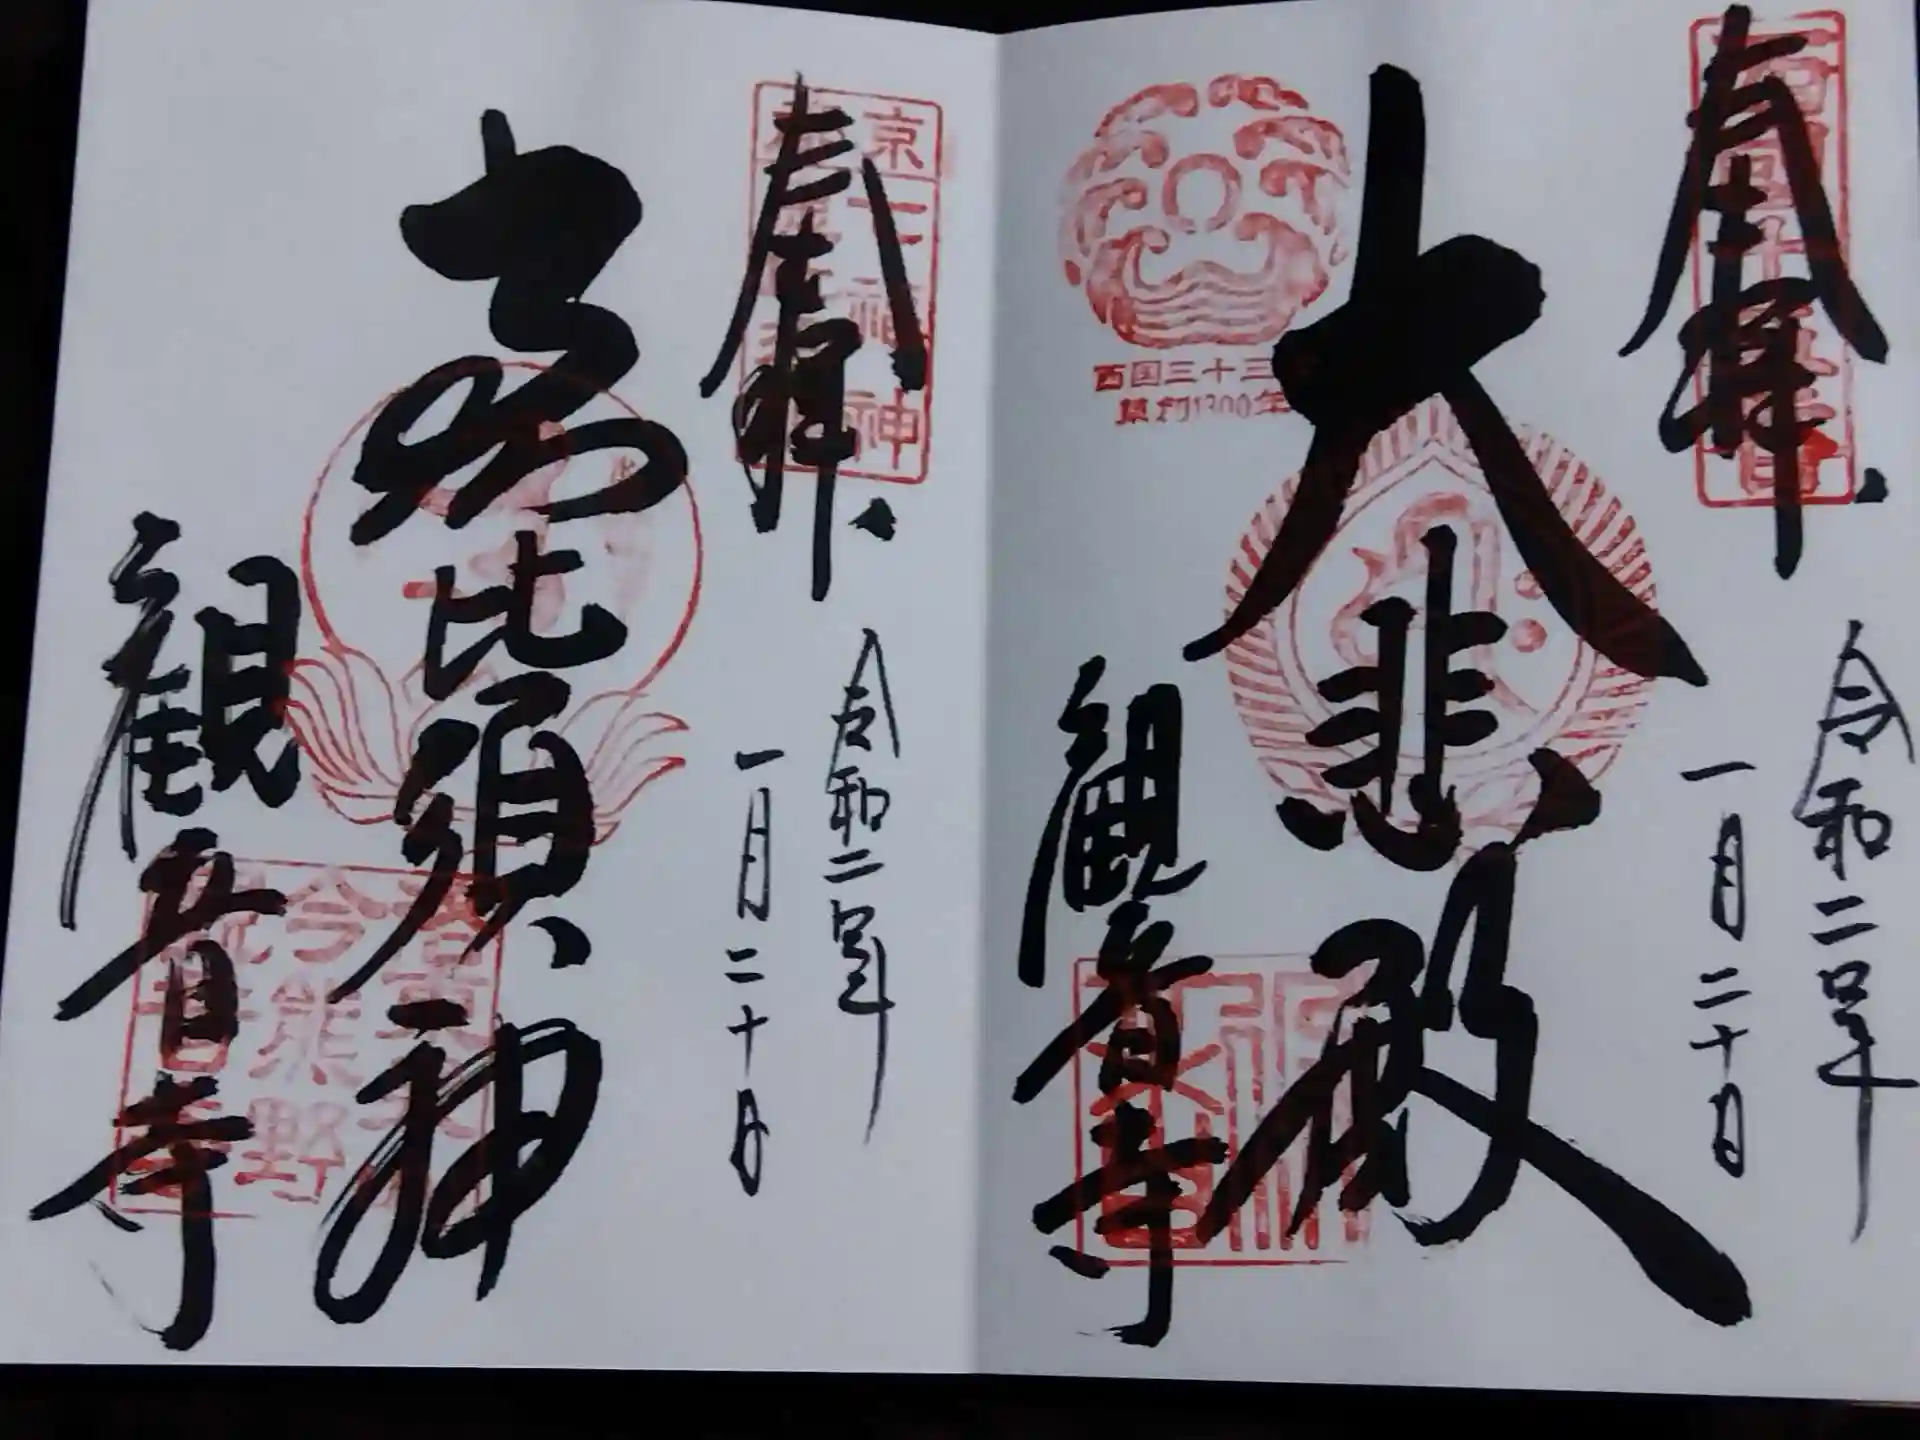 奉拝
令和二年
一月二十日
西国三十三
草創1300年
大悲殿
観音寺
奉拝
京
七福神
令和二年
一月二十日
恵比須神
観音寺
今熊野